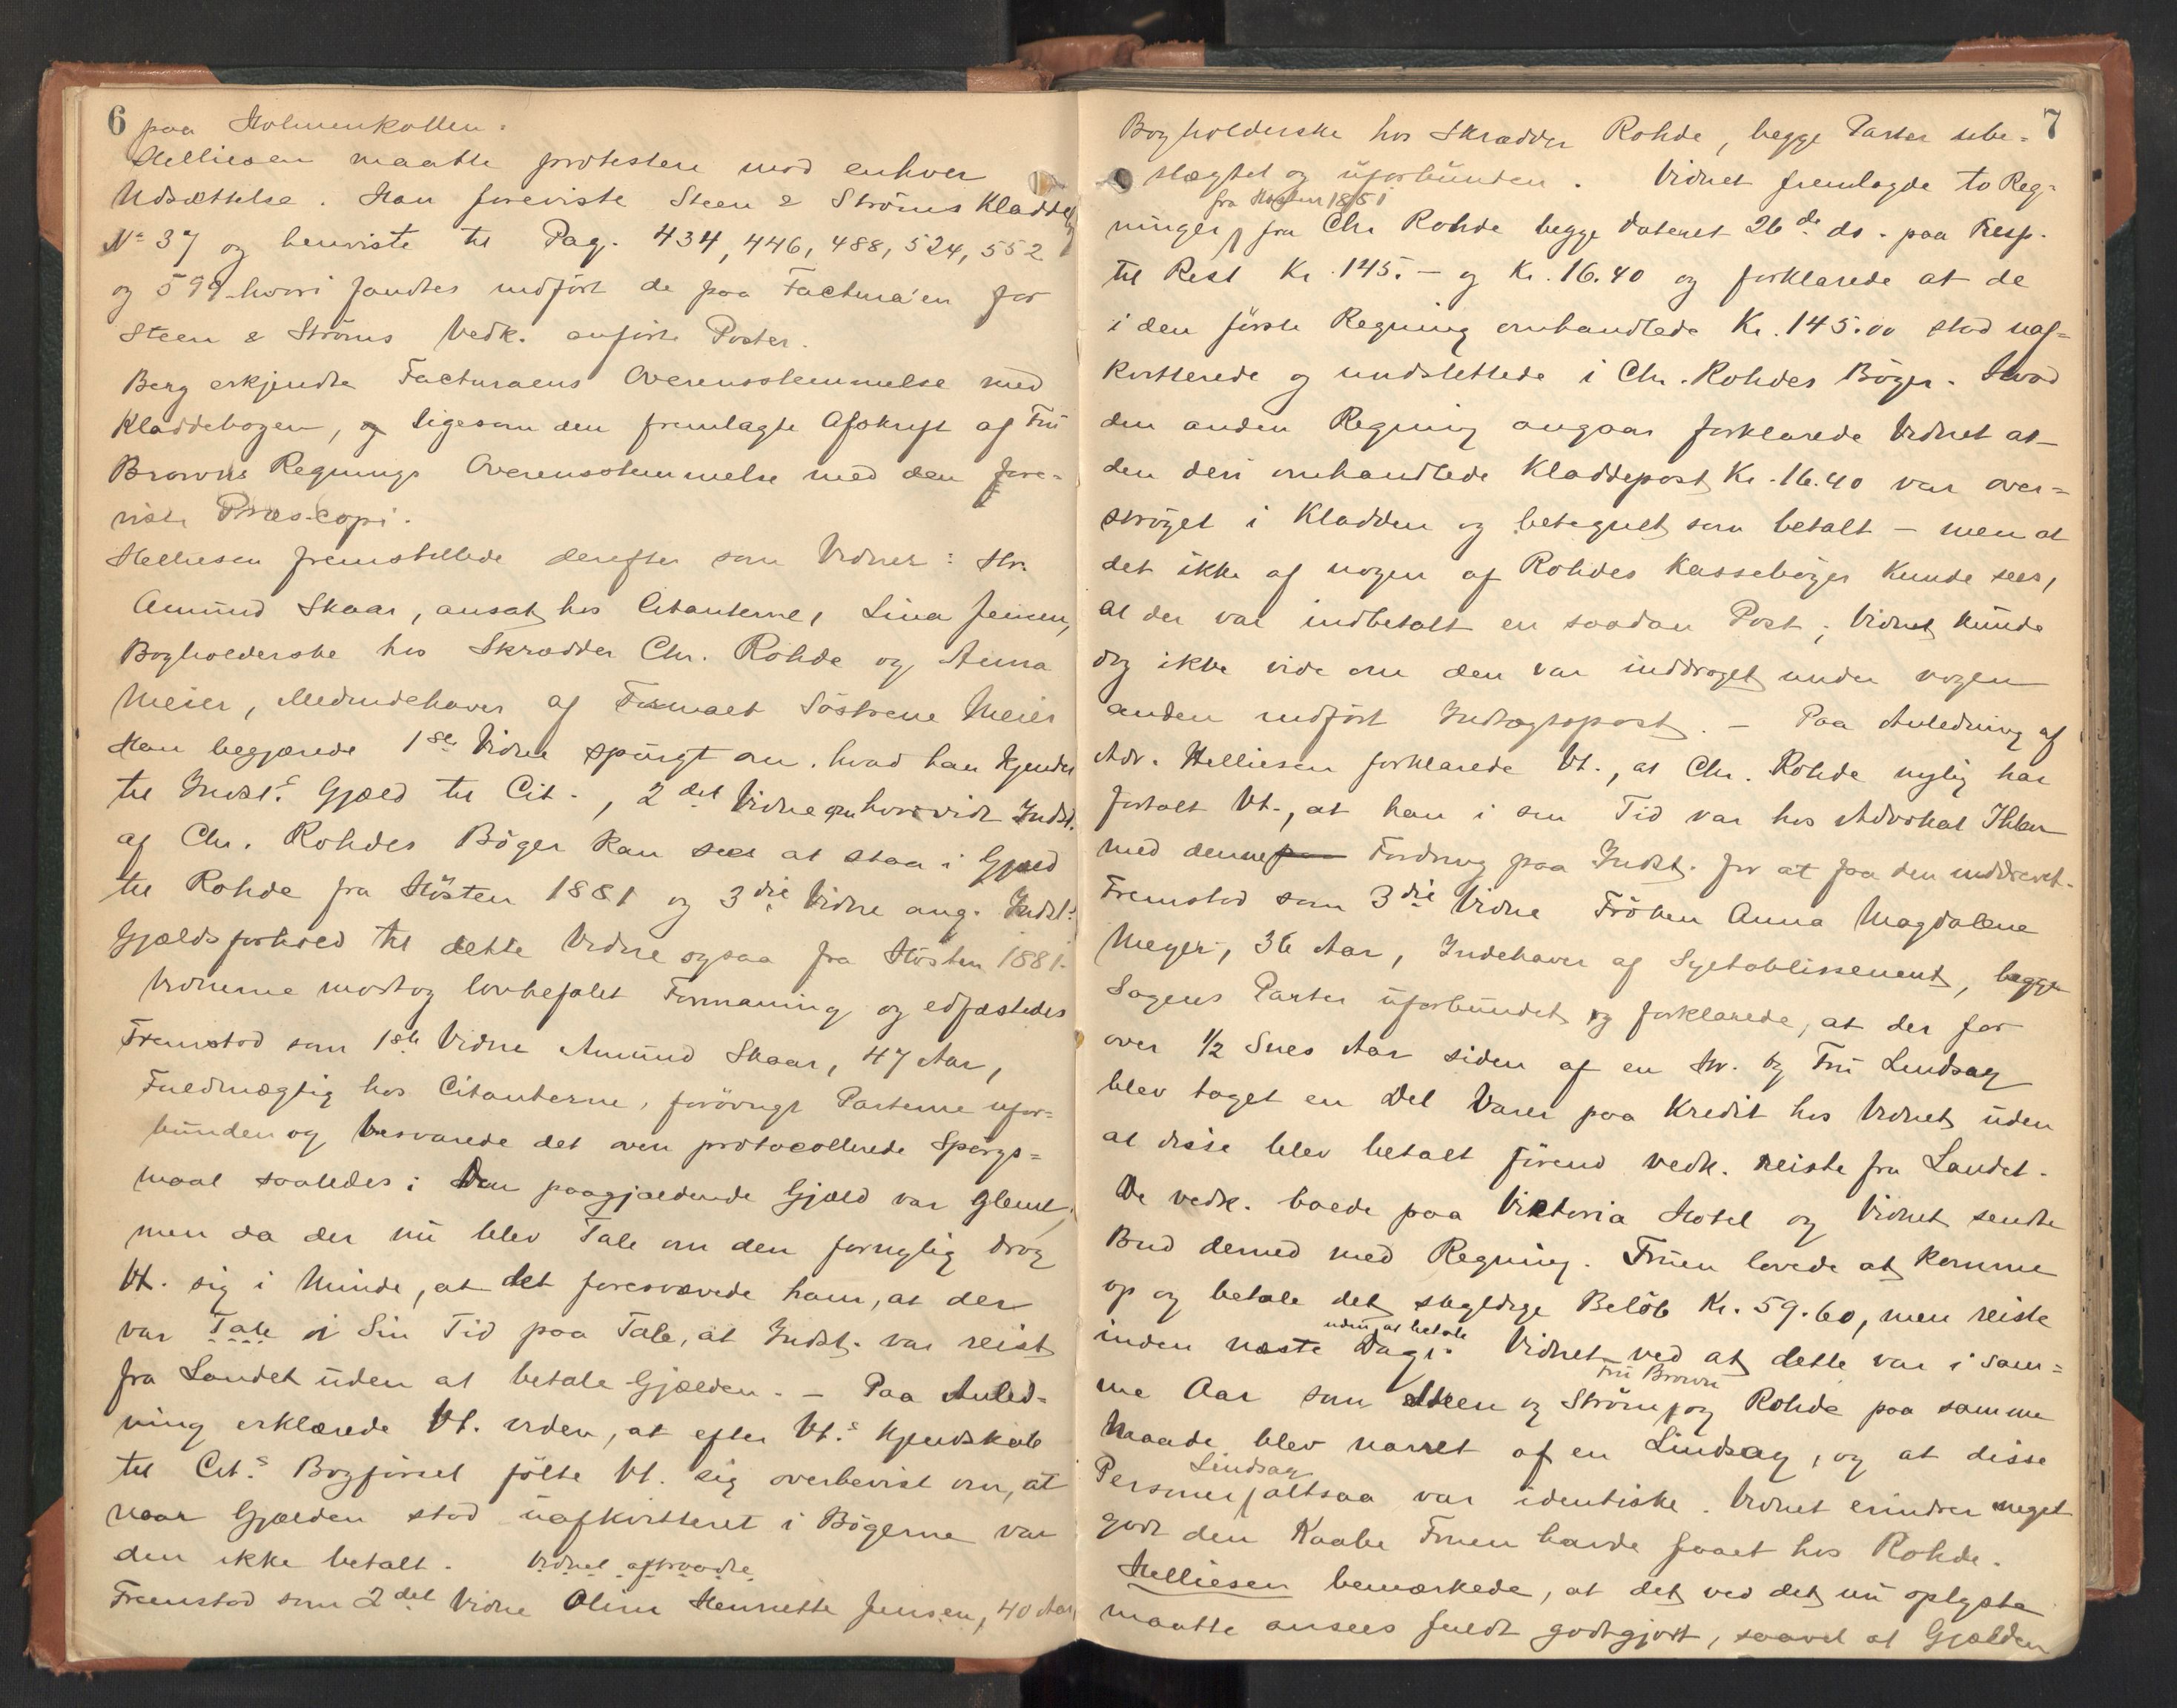 6
paa Holmenkollen.
Helliesen maatte protestere mod enhver
Udsættelse. Han foreviste Steen & Ströms Kladde
No 37 og henviste til Pag. 434, 446, 488, 524, 552
og 599 hvori fandtes indfört de paa Factura'en for
Steen & Ströms Vedk. anförte Poster.
Berg erkjendte Facturaens Overensstemmelse med
Kladdebogen, og ligesom den fremlagte Afskrift af Fru
Browns Regnings Overensstemmelse med den fore-
viste Præs-copi.
Helliesen fremstillede derefter som Vidner: Hr.
Amund Skaar, ansat hos Citanterne, Lina Jensen,
Bogholderske hos Skrædder Chr. Rohde og Anna
Meier, Medindehaver af Firmaet Söstrene Meier
Han begjærede 1ste Vidne spurgt om hvad han kjender
til Indst.s Gjæld til Cit., 2det Vidne om hvorvidt Indst.
af Chr. Rohdes Böger kan sees at staa i Gjæld
til Rohde fra Hösten 1881 og 3die Vidne ang. Indst.s
Gjældsforhold til dette Vidne ogsaa fra Hösten 1881.
Vidnerne modtog lovbefalet Formaning og edfæstedes
Fremstod som 1ste Vidne Amund Skaar, 47 Aar,
Fuldmægtig hos Citanterne, forövrigt Parterne ufor-
bunden og besvarede det oven protocollerede Spörgs-
maal saaledes: Den paagjældende Gjæld var glemt,
men da der nu blev Tale om den fornylig drog
Vt. sig i Minde, at det foresvævede ham, at der
var Tale i Sin Tid paa Tale, at Indst. var reist
fra Landet uden at betale Gjælden. - Paa Anled-
ning erklærede Vt. viden, at efter Vt.s Kjendskab
til Cit.s Bogförsel fölte Vt. sig overbevist om, at
naar Gjælden stod uafkvitteret i Bögerne var
den ikke betalt. Vidnet aftraadte
Fremstod som 2det Vidne Oline Henriette Jensen, 40 Aar
7
Bogholderske hos Skrædder Rohde, begge Parter ube-
slægtet og uforbunden. Vidnet fremlagde to Reg-
fra Hösten 1881
ninger fra Chr Rohde begge dateret 26de ds. paa Resp.
til Rest Kr. 145.- og Kr. 16.40 og forklarede at de
i den förste Regning omhandlede Kr. 145.00 stod uaf-
kvitterede og uudslettede i Chr. Rohdes Böger. Hvad
den anden Regning angaar forklarede Vidnet at
den deri omhandlede Kladdepost Kr. 16.40 var over-
ströget i Kladden og betegnet som betalt - men at
det ikke af nogen af Rohdes Kassebøger kunde sees,
at der var indbetalt en saadan Post; Vidnet kunde
dog ikke vide om den var inddraget under nogen
anden indfört Indtægtspost. - Paa Anledning af
Adv. Helliesen forklarede Vt., at Chr. Rohde nylig har
fortalt Vt., at han i sin Tid var hos Advokat Ihlen
med denne Fordring paa Indst. for at faa den inddrevet.
Fremstod som 3die Vidne Fröken Anna Magdalene
Meyer, 36 Aar, Indehaver af Syetablissement, begge
Sagens Parter uforbundet og forklarede, at der for
over 1/2 Snes Aar siden af en Hr. og Fru Lindsay
blev taget en Del Varer paa Kredit hos Vidnet uden
at disse blev betalt förend vedk. reiste fra Landet.
De vedk. boede paa Viktoria Hotel og Vidnet sendte
Bud derned med Regning. Fruen lovede at komme
op og betale det skyldige Belöb Kr. 59.60, men reiste
uden at betale
inden næste Dag. Vidnet ved at dette var i sam-
Fru Brown
me Aar som Steen og Ström, og Rohde paa samme
Maade blev narret af en Lindsay, og at disse
Lindsay
Personer altsaa var identiske. Vidnet erindrer meget
godt den Kaabe Fruen havde faaet hos Rohde.
Helliesen bemærkede, at det ved det nu oplyste
maatte ansees fuldt godtgjort, saavel at Gjælden